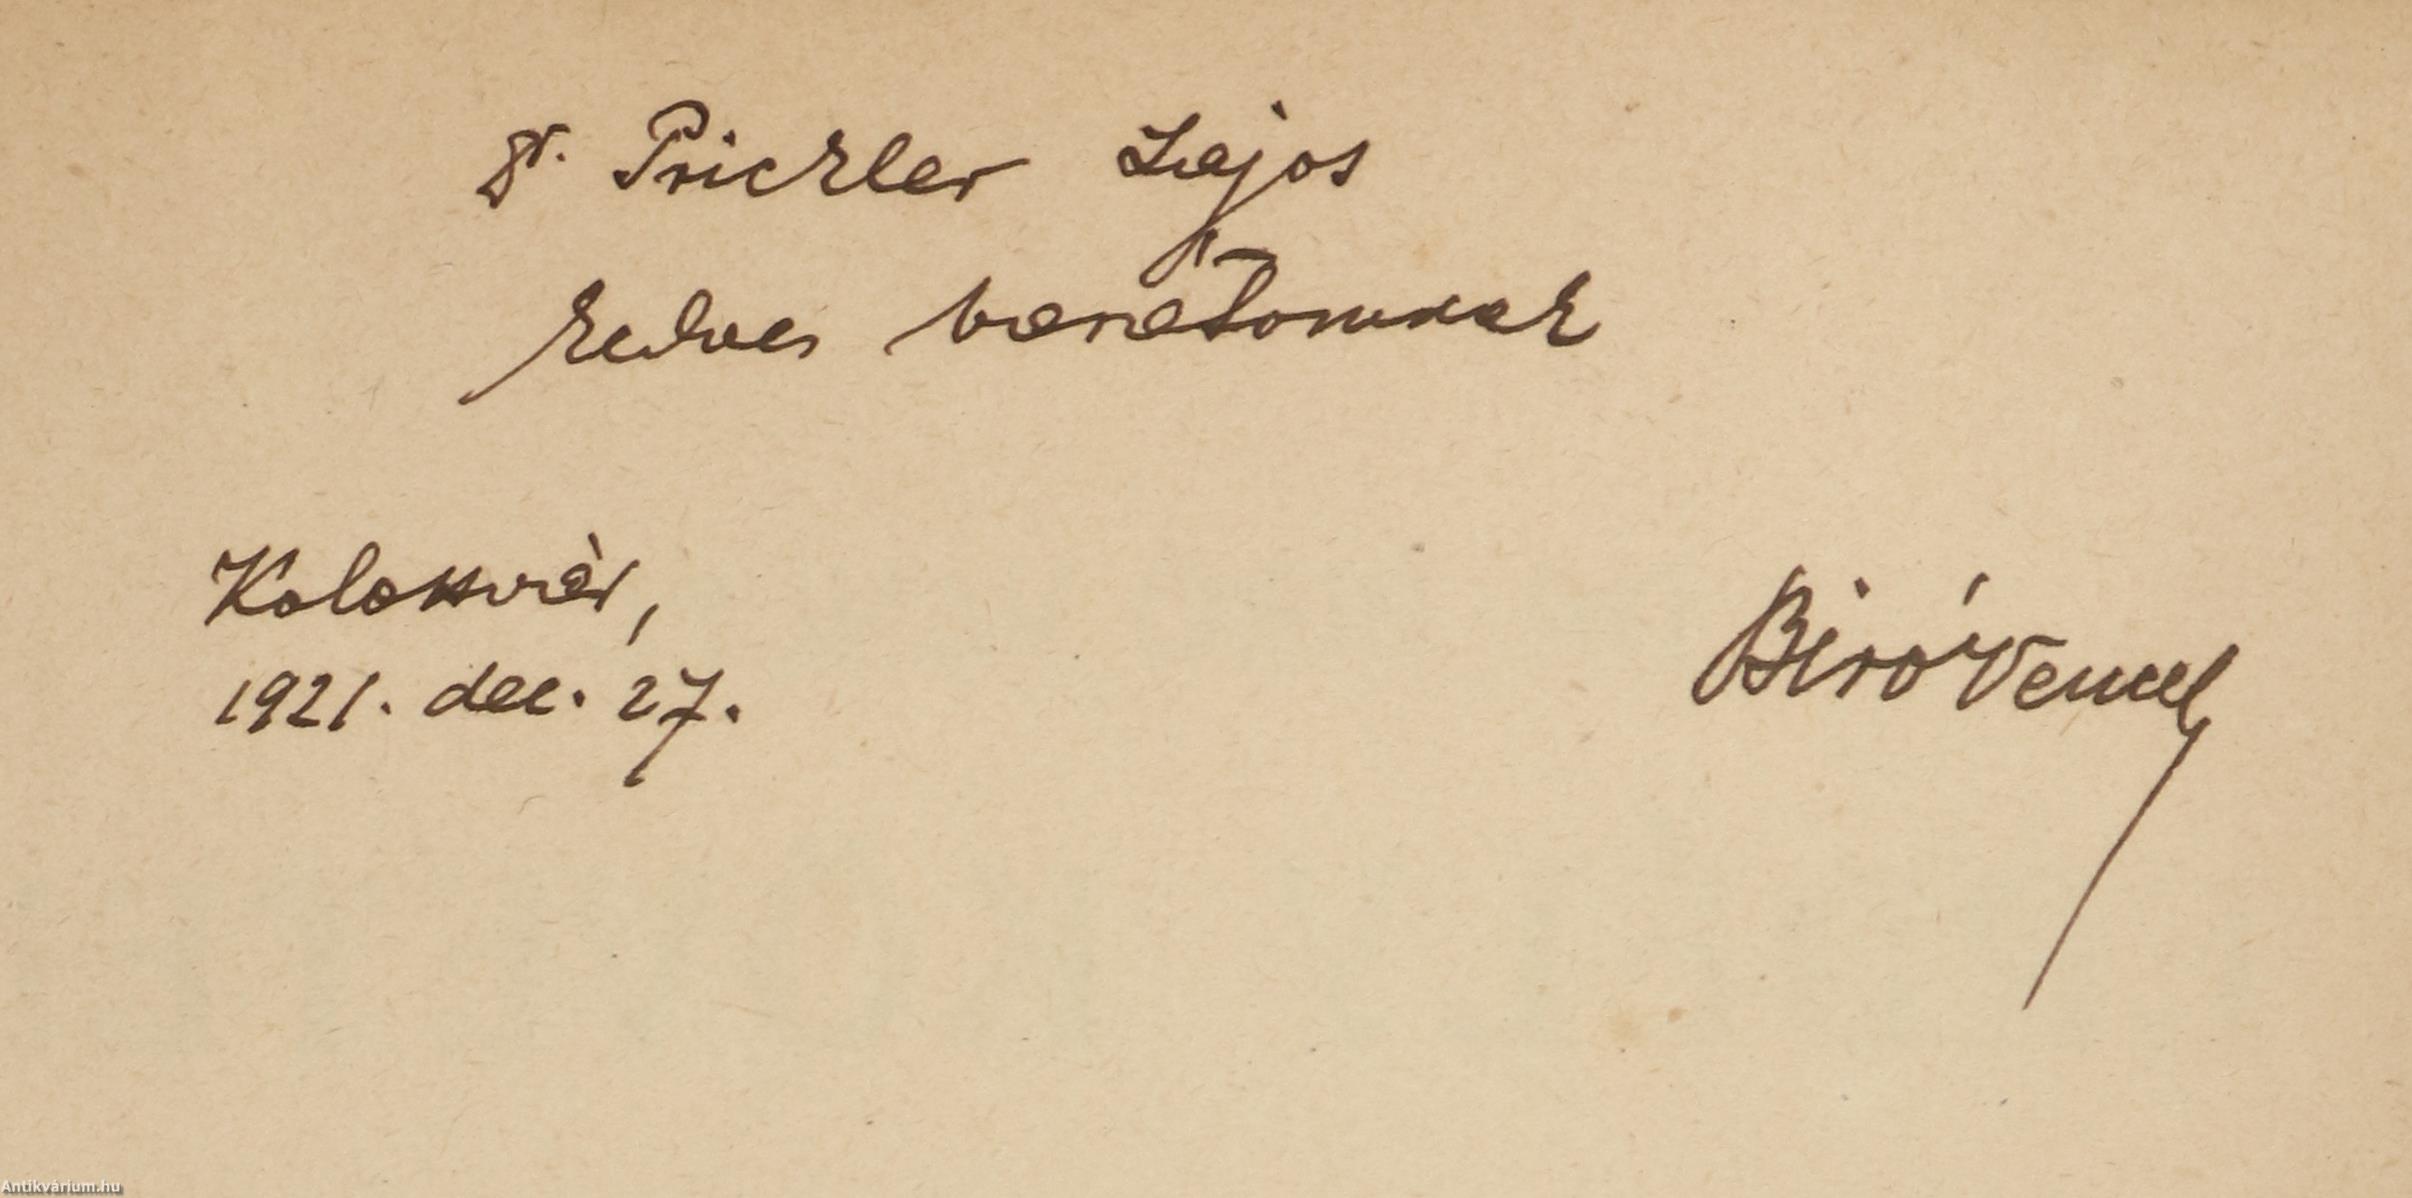 Dr. Prickler Lajos
kedves barátomnak
Kolozsvár,
1921. dec. 27.
Biró Vencel
Antikvárium.hu